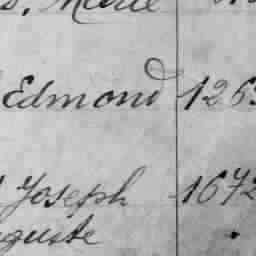 s, Marie
Edmond 126
Joseph 1672
guste